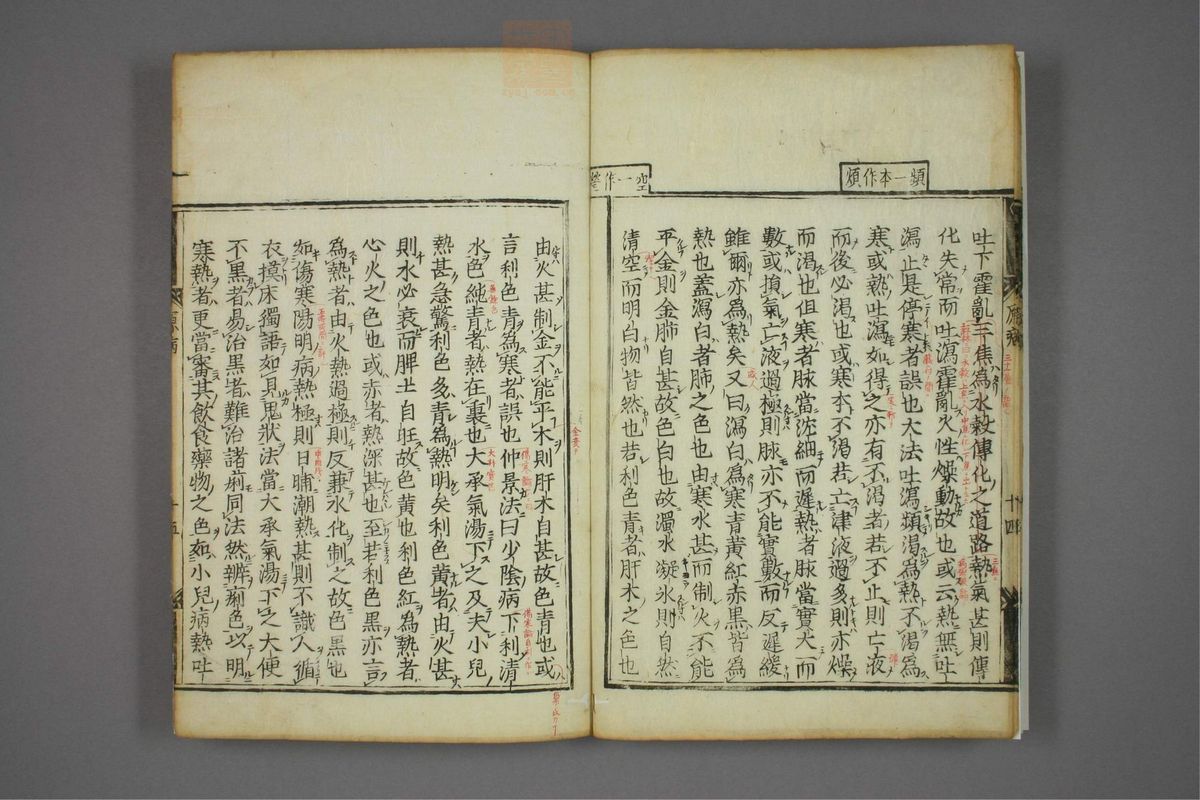 頻一本作煩
空一作瑩
吐下霍亂三焦為水穀傳化之道路熱氣甚則傳
化失常而吐瀉霍亂火性燥動故也或云熱無吐
瀉止是停寒者誤也大法吐瀉煩渴為熱不渴為
寒或熱吐瀉始得之亦有不渴者若不止則亡液
而後必渴也或寒本不渴若亡津液過多則亦燥
而渴也但寒者脉當沈細而遲熱者脉當實大而
數或損氣亡液過極則脉亦不能實數而反遲緩
雖爾亦為熱矣又曰瀉白為寒青黃紅赤黑皆為
熱也蓋瀉白者肺之色也由寒水甚而制火不能
平金則金肺自甚故色白也故濁水凝氷則自然
清空而明白物皆然也若利色青者肝木之色也
十四
由火甚制金不能平木則肝木自甚故色青也或
言利色青為寒者誤也仲景法曰少陰病下利清
水色純青者熱在裏也大承氣湯下之及夫小兒
熱甚急驚利色多青為熱明矣利色黃者由火甚
則水必衰而脾土自旺故色黃也利色紅為熱者
心火之色也或赤者熱深甚也至若利色黑亦言
為熱者由火熱過極則反兼水化制之故色黑也
如傷寒陽明病熱極則日晡潮熱甚則不識人循
衣摸床獨語如見鬼狀法當大承氣湯下之大便
不黑者易治黑者難治諸痢同法然辨痢色以明
寒熱者更當審其飲食藥物之色如小兒病熱吐
原病
十五